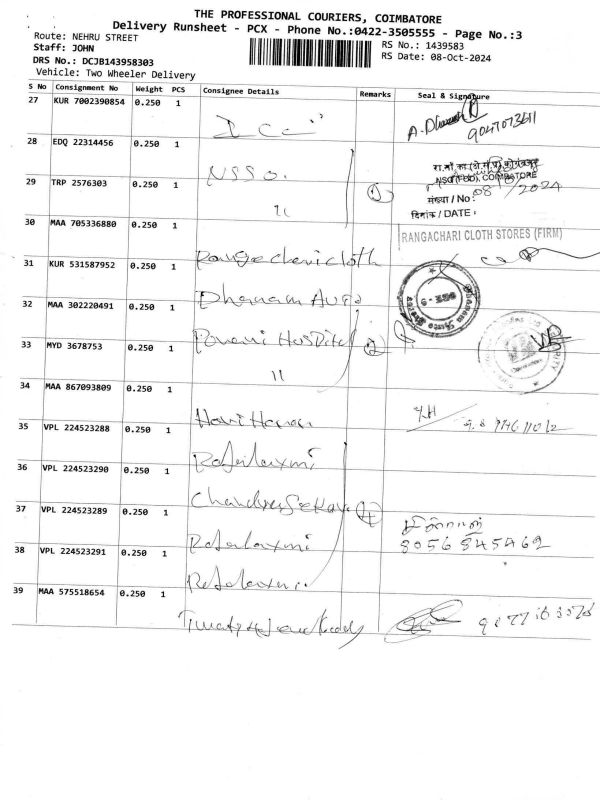 THE PROFESSIONAL COURIERS, COIMBATORE
Delivery Runsheet - PCX - Phone No.:0422-3505555 - Page No.:3
Route: NEHRU STREET
Staff: JOHN
DRS No.: DCJB143958303
Vehicle: Two Wheeler Delivery
RS No.: 1439583
RS Date: 08-Oct-2024
S No Consignment No Weight PCS Consignee Details Remarks Seal & Signature
27 KUR 7002390854 0.250 1
28 EDQ 22314456 0.250 1 NSSO.
NSO (FOD), COIMBATORE
29 TRP 2576303 0.250 1 11
संख्या / No: 08 2024
दिनांक / DATE :
30 MAA 705336880 0.250 1 Rangachari cloth
RANGACHARI CLOTH STORES (FIRM)
31 KUR 531587952 0.250 1 Dhanam Auto
32 MAA 302220491 0.250 1 Hospital 2
33 MYD 3678753 0.250 1 11
34 MAA 867093809 0.250 1 Hari
35 VPL 224523288 0.250 1 Rajalaxmi
36 VPL 224523290 0.250 1 Chandrasekar 4
37 VPL 224523289 0.250 1 Rajalaxmi
8056845462
38 VPL 224523291 0.250 1 Rajalaxmi
39 MAA 575518654 0.250 1